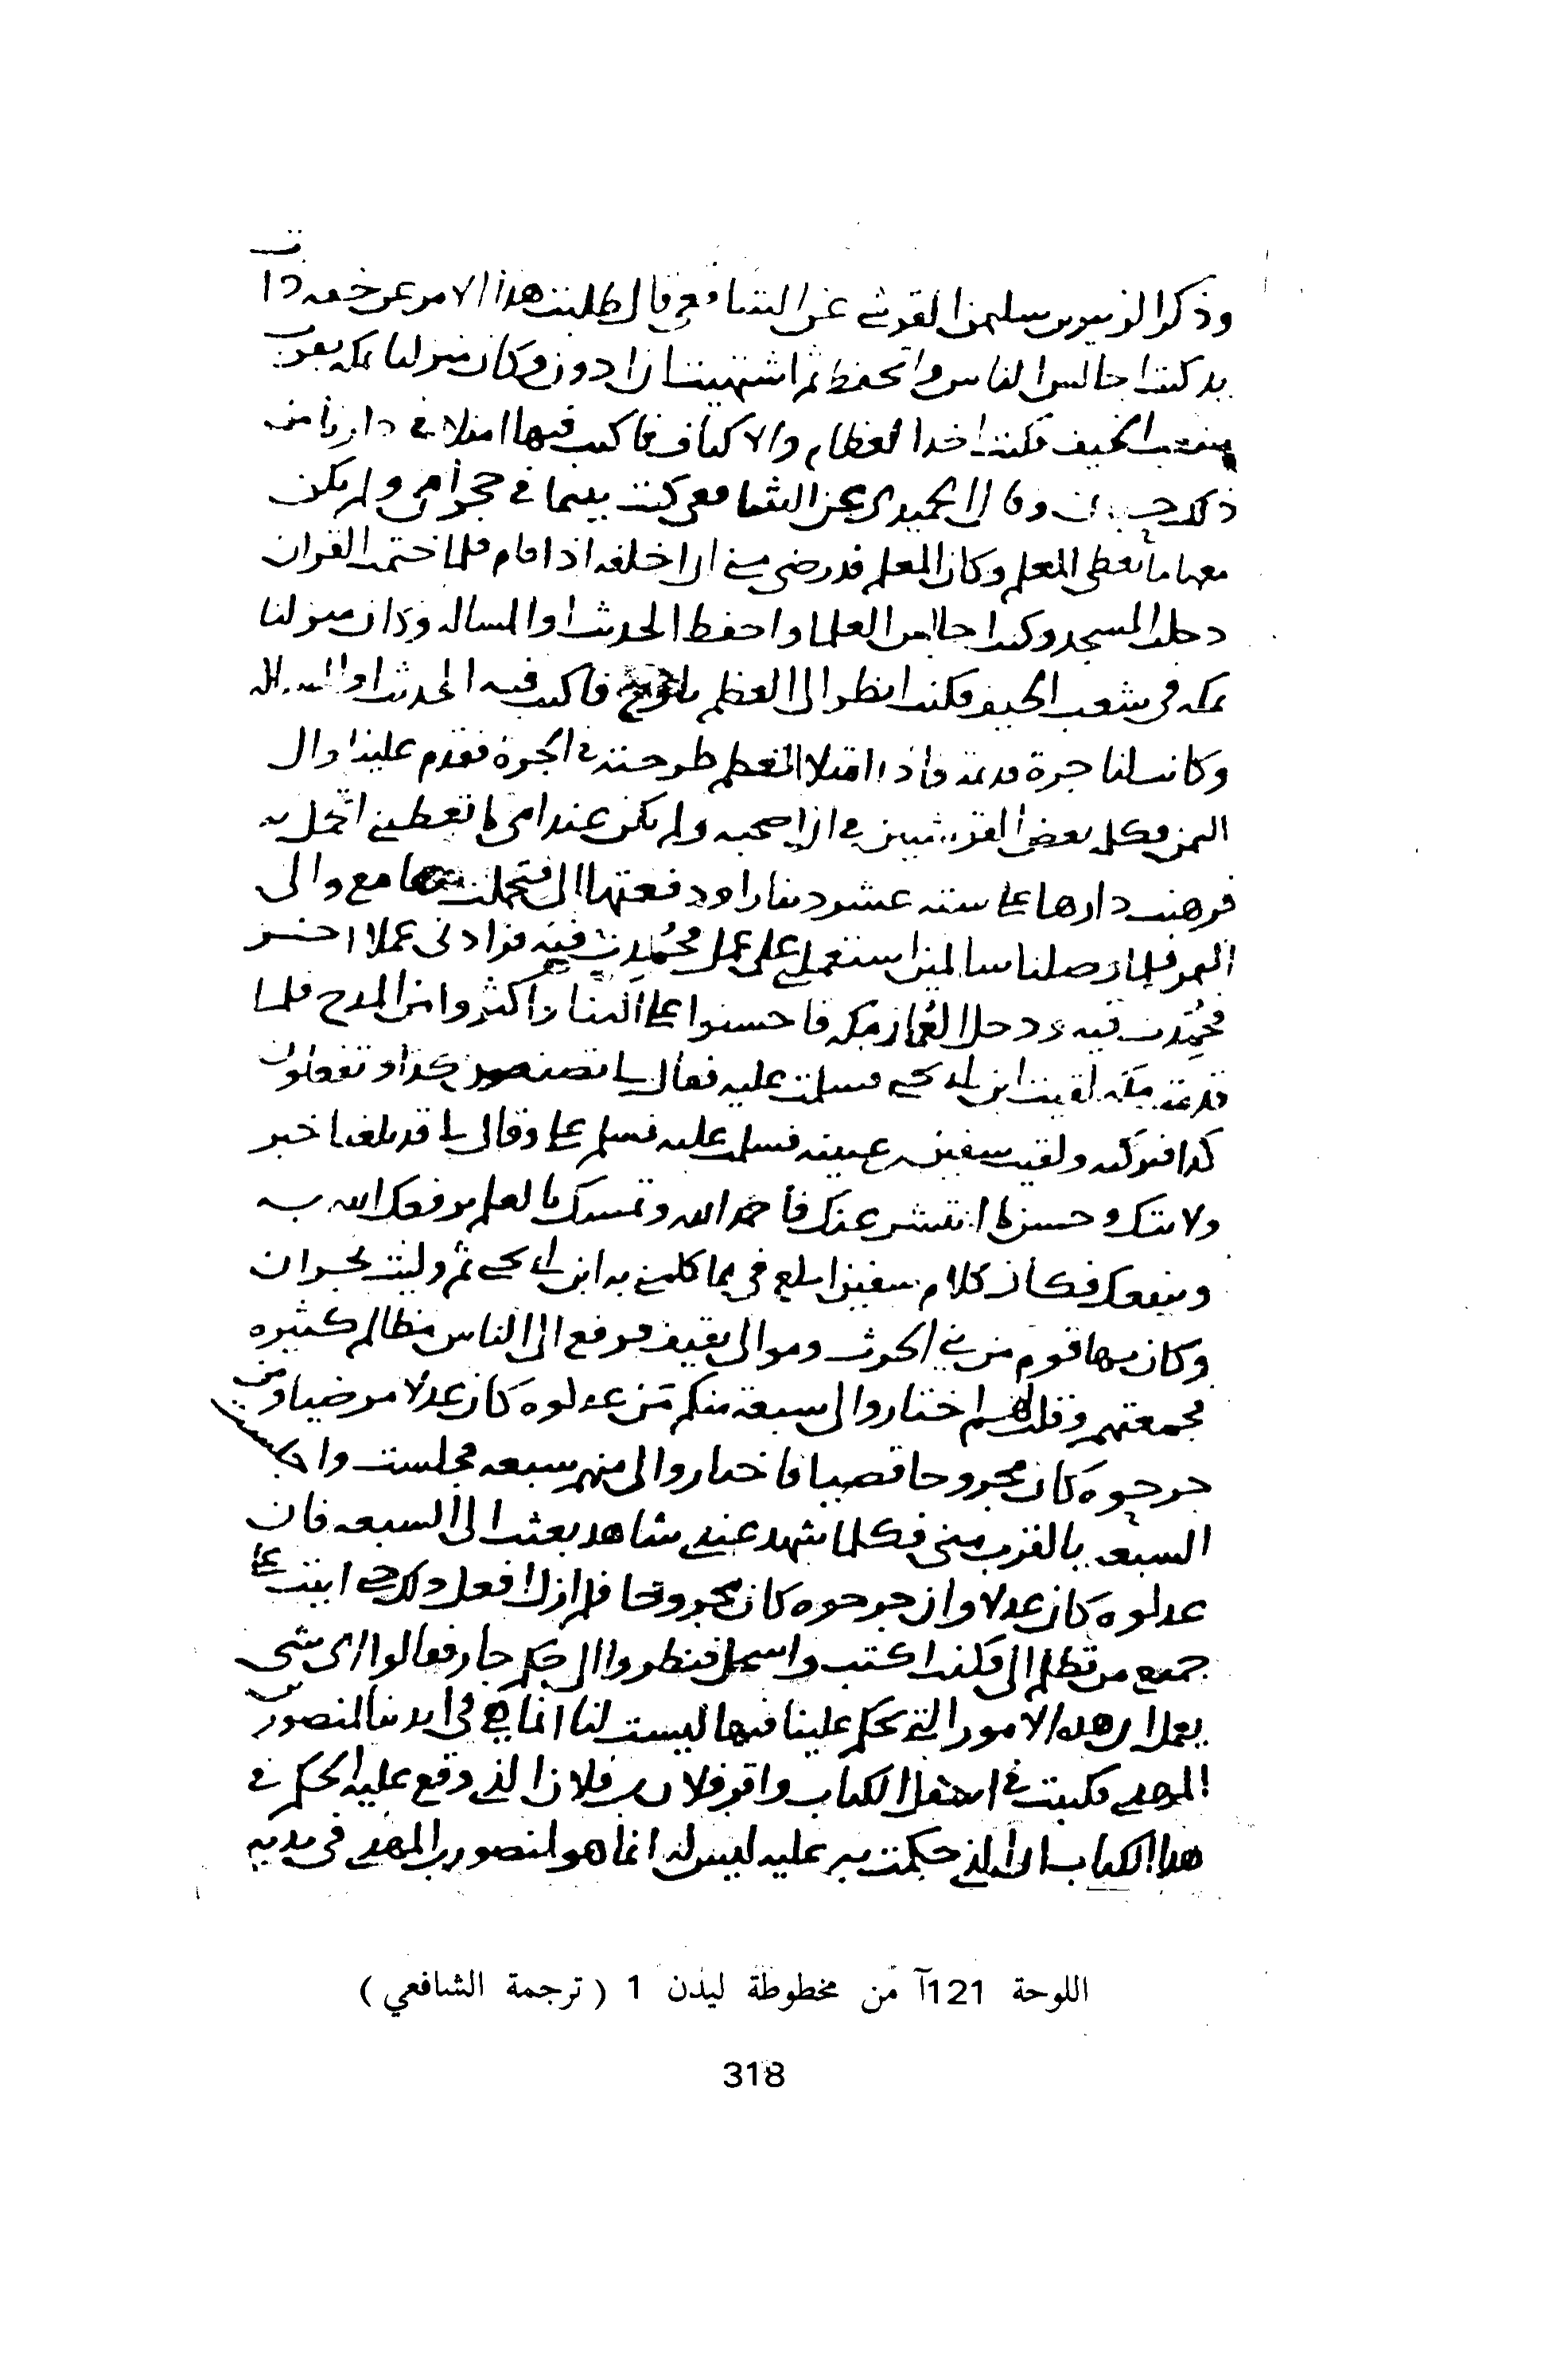 وذكر الزبير بن سليمن القرشي عن الشافعي قال طلبت هذا الامر عن خفة ذات
يد كنت اجالس الناس واتحفظ ثم اشتهيت ان ادون وكان منزلنا بمكه بقرب
شعب الخيف فكنت اخذ العظام والاكتاف فاكتب فيها امتلا في دارنا من
ذلك حبان وقال الحميدي عن الشافعي كنت يتيما في حجر امي ولم يكن
معها ما تعطي المعلم وكان المعلم قد رضي مني ان اخلفه اذا قام فلما ختمت القران
دخلت المسجد وكنت اجالس العلما واحفظ الحديث او المساله وكان منزلنا
بمكه في شعب الخيف فكنت انظر الى العظم يلوح فاكتب فيه الحديث او المساله
وكانت لنا جرة قديمة فاذا امتلا العظم طرحته في الجرة فقدم علينا وال
اليمن فكلمه بعض القرشيين في ان اصحبه ولم يكن عند امي ما تعطيني اتحمل به
فرهنت دارها على ستة عشر دينارا ودفعتها الي فتحملت بها مع والي
اليمن فلما وصلنا سالمين استعملني على عمل فحمدت فيه فزادني عملا اخر
فحمدت فيه ودخل العمار مكه فاحسنوا علي الثنا واكثروا من المدح فلما
قدمت مكه لقيت ابن ابي يحيى فسلمت عليه فقال لي تصنعون كذا وتفعلون
كذا فتركته ولقيت سفين بن عيينه فسلمت عليه فسلم علي وقال لي قد بلغنا خبر
ولايتك وحسن ما انتشر عنك فاحمد الله وتمسك بالعلم يرفعك الله به
وينفعك فكان كلام سفين ابلغ في مما كلمني به ابن ابي يحيى ثم وليت نجران
وكان بها قوم من بني الحرث وموالي ثقيف فرفع الي الناس مظالم كثيره
فجمعتهم وقلت لهم اختاروا لي سبعة منكم من عدلوه كان عدلا مرضيا ومن
جرحوه كان مجروحا قصيا فاختاروا لي منهم سبعه فجلست واجلست
السبعه بالقرب مني فكلما شهد عندي شاهد بعثت الى السبعه فان
عدلوه كان عدلا وان جرحوه كان مجروحا فلم ازل افعل ذلك حتى اتيت على
جميع من تظلم الي فكنت اكتب واسجل فنظروا الى حكم جار فقالوا اي شي
يعمل ان هذه الامور التي تحكم علينا فيها ليست لنا انما هي في ايدينا لمنصور بن
المهدي فكتبت في اسفل الكتاب واقر فلان بن فلان الذي وقع عليه الحكم في
هذا الكتاب ان الذي حكمت به عليه ليس له انما هو لمنصور بن المهدي في يديه
اللوحة 121آ من مخطوطة ليدن 1 (ترجمة الشافعي)
318